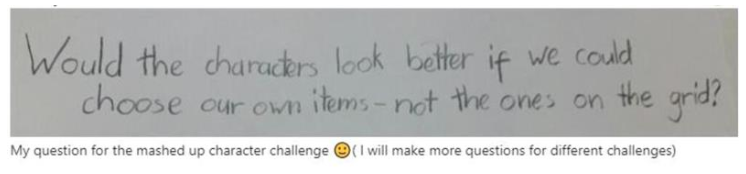 Would the characters look better if we could
choose our own items - not the ones on the grid?
My question for the mashed up character challenge 🙂( I will make more questions for different challenges)